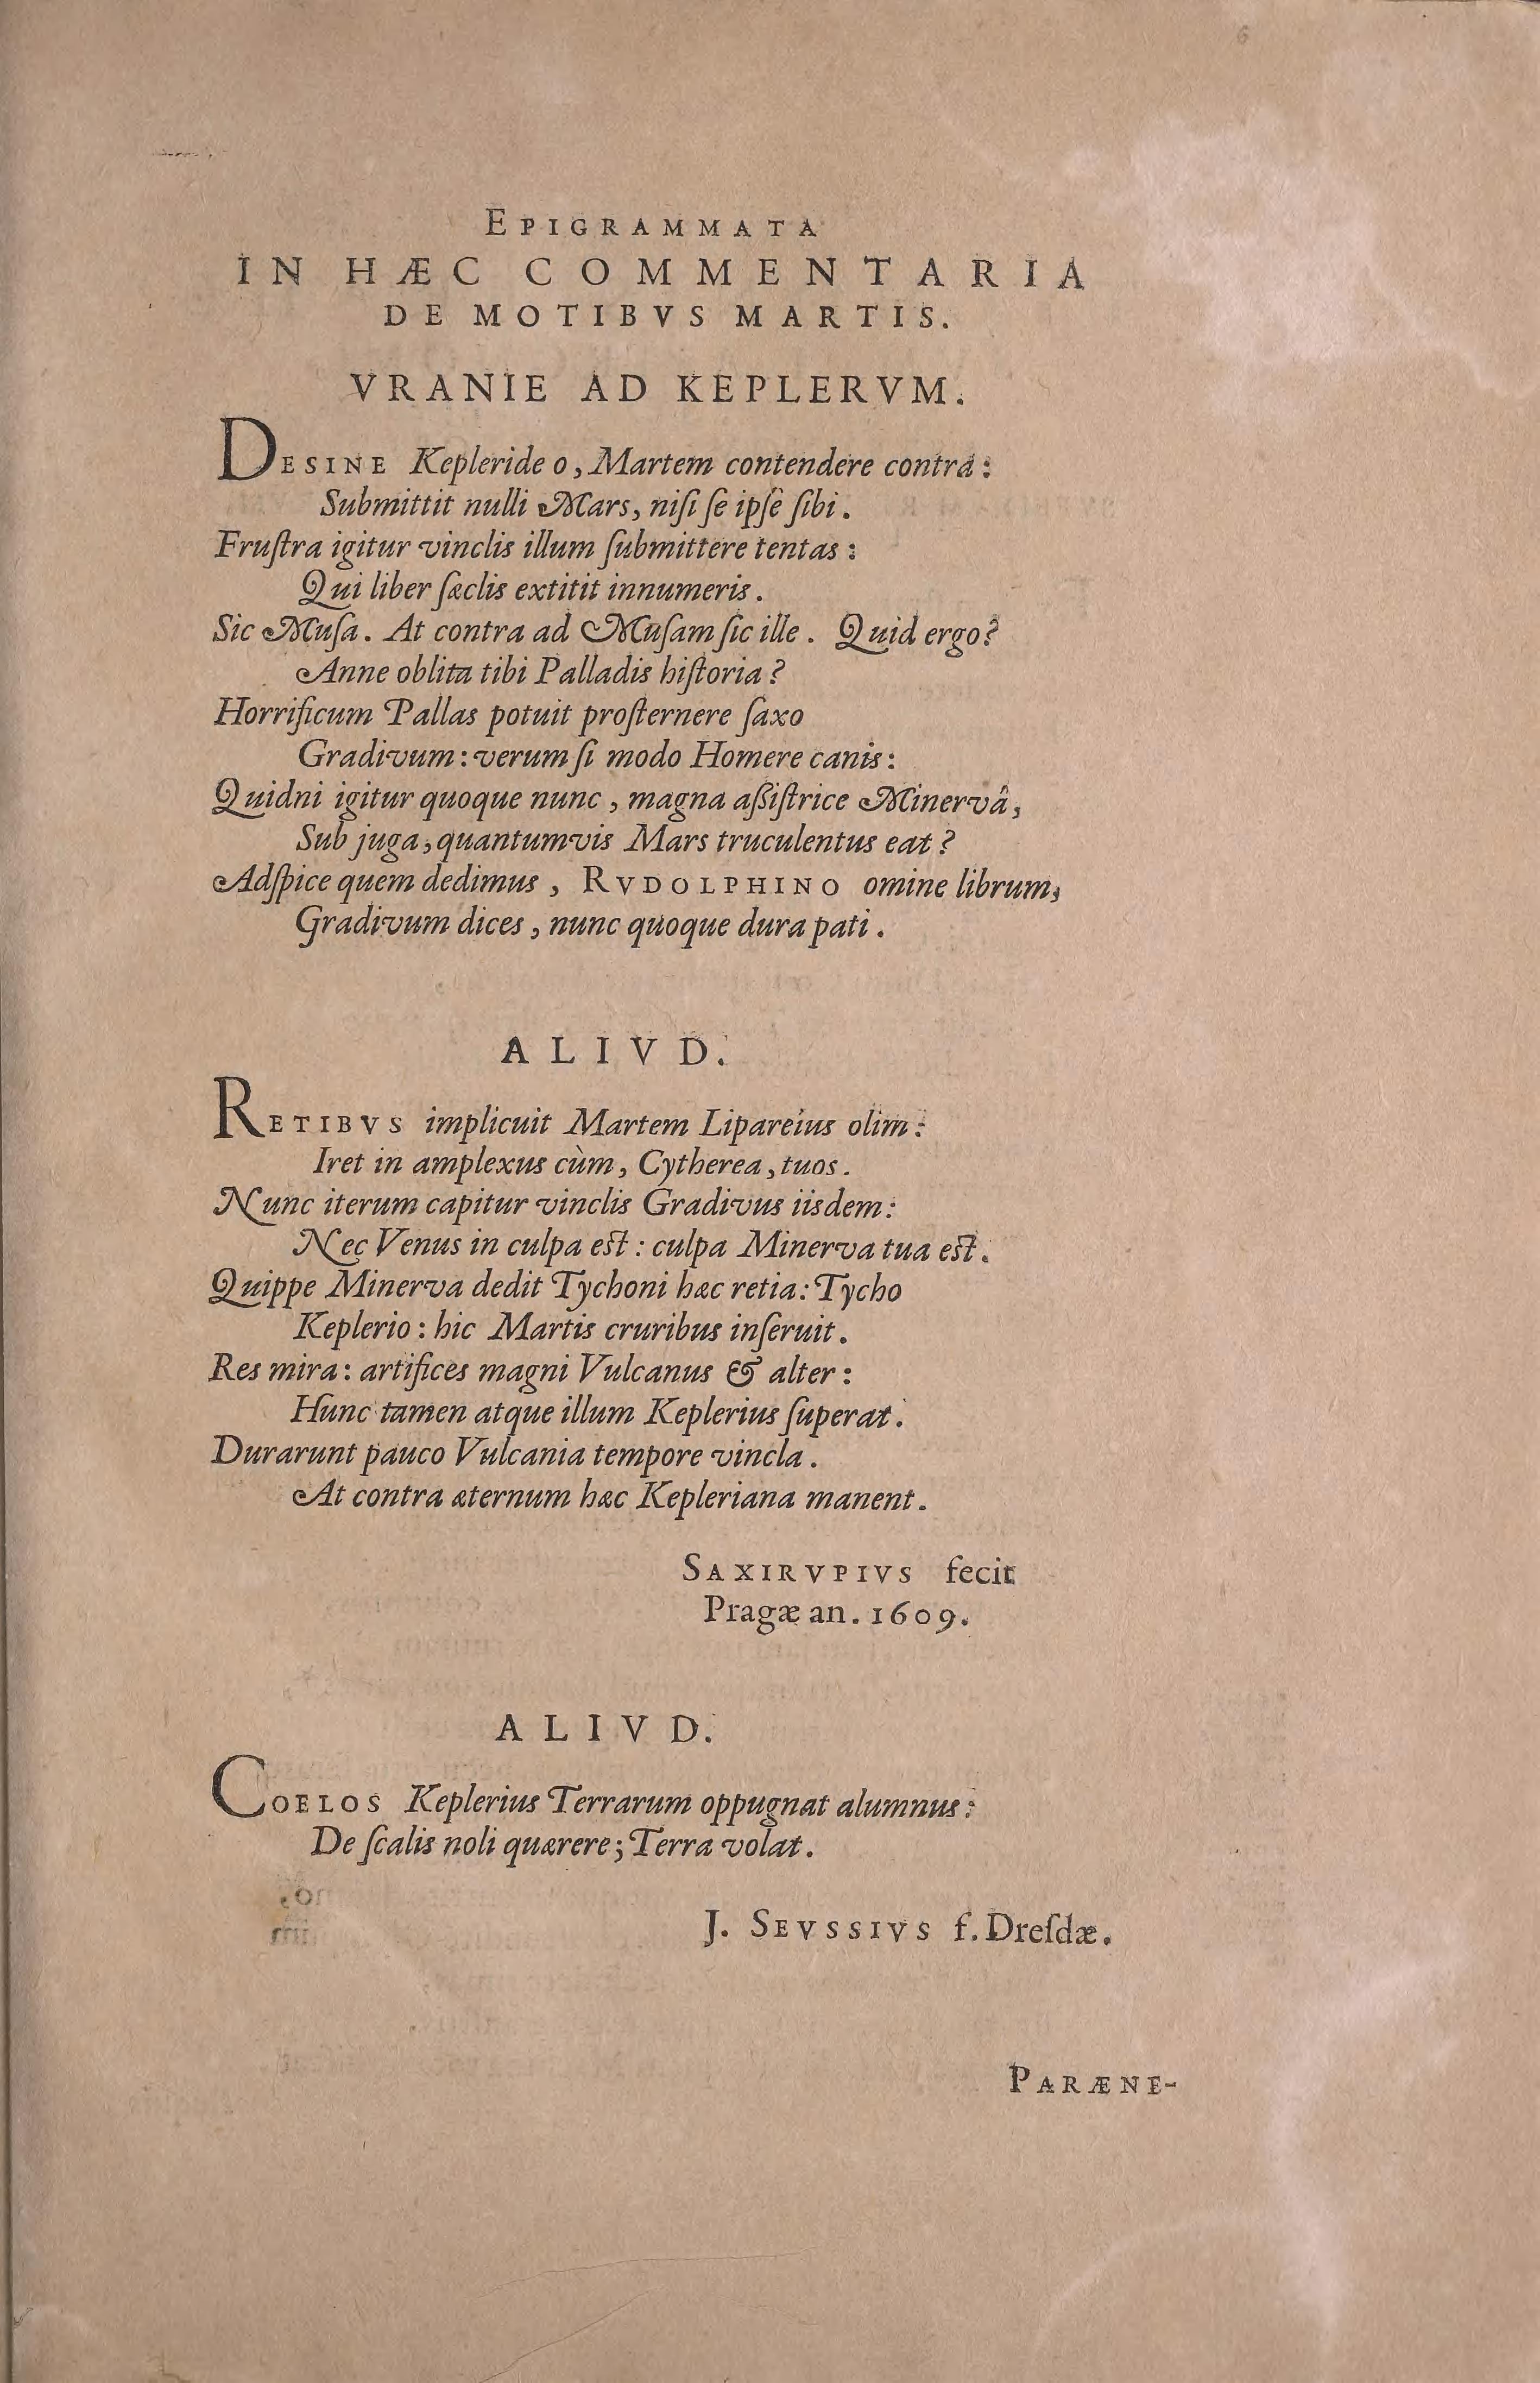 EPIGRAMMATA
IN HÆC COMMENTARIA
DE MOTIBVS MARTIS.
VRANIE AD KEPLERVM.
DESINE Kepleride o, Martem contendere contrà:
Submittit nulli Mars, niſi ſe ipſe ſibi.
Fruſtra igitur vinclis illum ſubmittere tentas:
Qui liber ſæclis extitit innumeris.
Sic Muſa. At contra ad Muſam ſic ille. Quid ergo?
Anne oblita tibi Palladis hiſtoria?
Horrificum Pallas potuit proſternere ſaxo
Gradivum: verum ſi modo Homere canis:
Quidni igitur quoque nunc, magna aßiſtrice Minervâ,
Sub juga, quantumvis Mars truculentus eat?
Adſpice quem dedimus, RVDOLPHINO omine librum,
Gradivum dices, nunc quoque dura pati.
ALIVD.
RETIBVS implicuit Martem Lipareïus olim:
Iret in amplexus cùm, Cytherea, tuos.
Nunc iterum capitur vinclis Gradivus iisdem:
Nec Venus in culpa eſt: culpa Minerva tua eſt.
Quippe Minerva dedit Tychoni hæc retia: Tycho
Keplerio: hic Martis cruribus inſeruit.
Res mira: artifices magni Vulcanus & alter:
Hunc tamen atque illum Keplerius ſuperat.
Durarunt pauco Vulcania tempore vincla.
At contra æternum hæc Kepleriana manent.
SAXIRVPIVS fecit
Pragæ an. 1609.
ALIVD.
COELOS Keplerius Terrarum oppugnat alumnus:
De ſcalis noli quærere; Terra volat.
J. SEVSSIVS f. Dreſdæ.
PARÆNE-